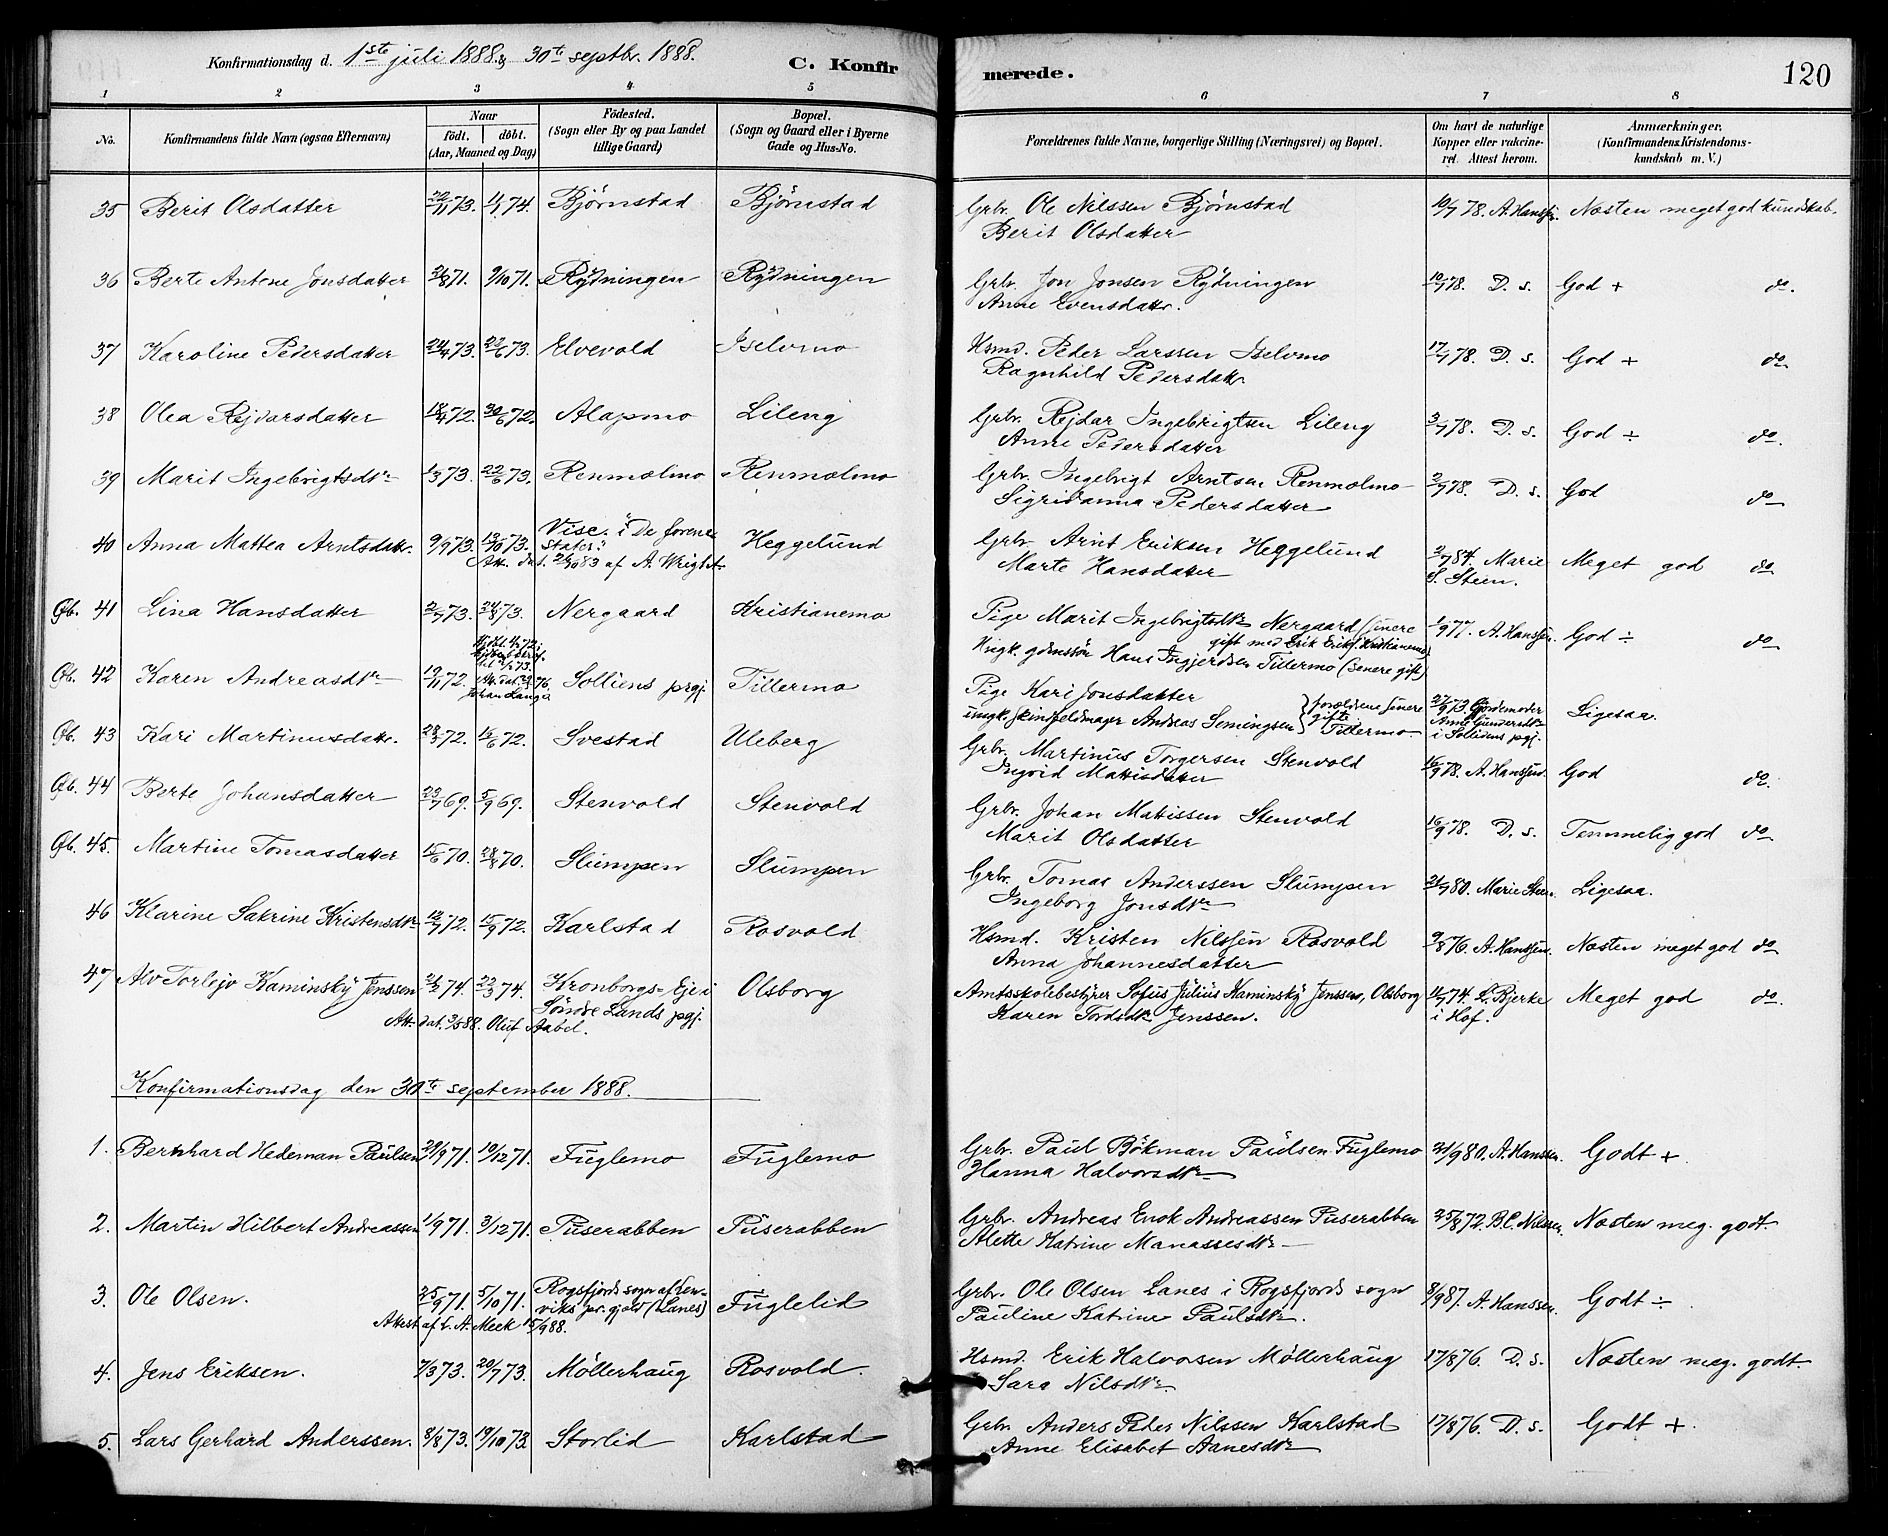 Konfirmationsdag d. 1ste juli 1888 & 30te septbr. 1888. C. Konfir merede. 120
1 2 3 4 5 6 7 8
No. Konfirmandens fulde Navn (ogsaa Efternavn) Naar födt. döbt. (Aar, Maaned og Dag) Födested. (Sogn eller By og paa Landet tillige Gaard) Bopæl. (Sogn og Gaard eller i Byerne Gade og Hus-No. Forældrenes fulde Navne, borgerlige Stilling (Næringsvei) og Bopæl. Om havt de naturlige Kopper eller vakcineret. Attest herom. Anmærkninger. (Konfirmandens Kristendomskundskab m. V.)
35 Berit Olsdatter 22/11 73. 1/1 74. Bjørnstad Bjørnstad Grbr. Ole Nilssen Bjørnstad 10/7 78. A. Hanssen. Næsten meget god kundskab.
Berit Olsdatter
36 Berte Antone Jonsdatter 21/8 71. 9/10 71. Rydningen Rydningen Grbr. Jon Jonsen Rydningen 10/7 78. D. s. God + do.
Anne Evensdattr.
37 Karoline Pedersdatter 24/4 73. 22/6 73. Elvevold Iselvmo Hsmd. Peder Larssen Iselvmo 17/7 78. D. s. God + do
Ragnhild Pedersdattr
38 Olea Rejdarsdatter 18/4 72. 30/6 72. Alapmo Lileng Grbr. Rejdar Ingebrigtsen Lileng 3/7 78. D. s. God ÷ do.
Anne Pedersdatter
39 Marit Ingebrigtsdtr 1/3 73. 22/6 73. Renmælmo Renmælmo Grbr. Ingebrigt Arntsen Renmælmo 2/7 78. D. s. God do
Sigridanna Pedersdatter
40 Anna Mattea Arntsdattr. 9/9 73. 12/10 73. Visc. i De forene Heggelund Grbr. Arnt Eriksen Heggelund 2/7 84. Marie Meget god do
stater. Marte Hansdatter S. Steen.
Att. dat. 2/10 83 af A. Wright
Øb. 41 Lina Hansdatter 2/7 73. 24/8 73. Nergaard Kristianemo Pige Marit Ingebrigtsdtr Nergaard (senere 1/9 77. A. Hanssen. God ÷ do
gift med Erik Eriks. Kristianemo)
Ungk. Hans Ingjerdsen Tillermo (senere gift)
Øb. 42 Karen Andreasdtr 19/11 72. Solliens prgj. Tillermo Pige Kari Jonsdatter forældrene senere 27/9 73. Jordemoder Ligesaa.
Johan Lange ungk. skindfeldmager Andreas Semingsen gifte Tillermo. Anne Gundersdtr
i Sollidens pgj.
Øb. 43 Kari Martinusdattr. 28/3 72. 16/6 72. Svestad Uleberg Grbr. Martinus Torgersen Stenvold 16/9 78. A. Hanssen. God do.
Ingrid Mattisdatter
Øb. 44 Berte Johansdatter 23/7 69. 5/9 69. Stenvold Stenvold Grbr. Johan Matissen Stenvold 16/9 78. D. s. Temmelig god do
Marit Olsdatter
Øb. 45. Martine Tomasdatter 15/6 70. 28/8 70. Slumpen Slumpen Grbr. Tomas Anderssen Slumpen 21/7 80. Marie Steen. Ligesaa.
Ingeborg Jonsdtr
46 Klarine Sakrine Kristensdtr 12/7 72. 15/9 72. Karlstad Rosvold Hsmd. Kristen Nilssen Rosvold 9/8 76. A. Hanssen. Næsten meget god do
Anna Johannesdatter
47 Alv Torlejv Kaminsky Jenssen 26/2 74. 22/3 74. Kronborgs-Eje i Olsborg Amtsskolebestyrer Sofus Julius Kaminsky Jenssen, Olsborg 14/7 74. L. Bjerke Meget god do.
Søndre Lands pgj. Karen Tordsdtr Jenssen. i Hof.
Att. dat. 3/5 88. Oluf Aabel.
Konfirmationsdag den 30te september 1888.
1. Bernhard Hedeman Paulsen 29/9 71. 10/12 71. Fuglemo Fuglemo Grbr. Paul Bökman Paulsen Fuglemo 21/9 80. A. Hanssen. Godt +
Hanna Halvorsdtr
2. Martin Hilbert Andreassen 1/9 71. 3/12 71. Puserabben Puserabben Grbr. Andreas Enok Andreassen Puserabben 25/8 72. B. C. Nilssen. Næsten meg. godt.
Alette Katrine Manassesdtr
3. Ole Olsen. 25/9 71. 5/10 71. Rogsfjords sogn af Len- Fuglelid Grbr. Ole Olsen Lanes i Rogsfjords sogn 8/9 87. A. Hanssen. Godt ÷
viks pr. gjæld (Lanes) Pauline Katrine Paulsdtr.
Attest af L. A. Meek 15/9 88.
4. Jens Eriksen. 7/3 73. 20/7 73. Möllerhaug Rosvold. Hsmd. Erik Halvorsen Möllerhaug 17/8 76. D. s. Næsten meg. godt
Sara Nilsdtr.
5. Lars Gerhard Anderssen. 8/8 73. 19/10 73. Storlid Karlstad Grbr. Anders Peder Nilssen Karlstad 17/8 76. D. s. Godt +
Anne Elisabet Aanesdtr